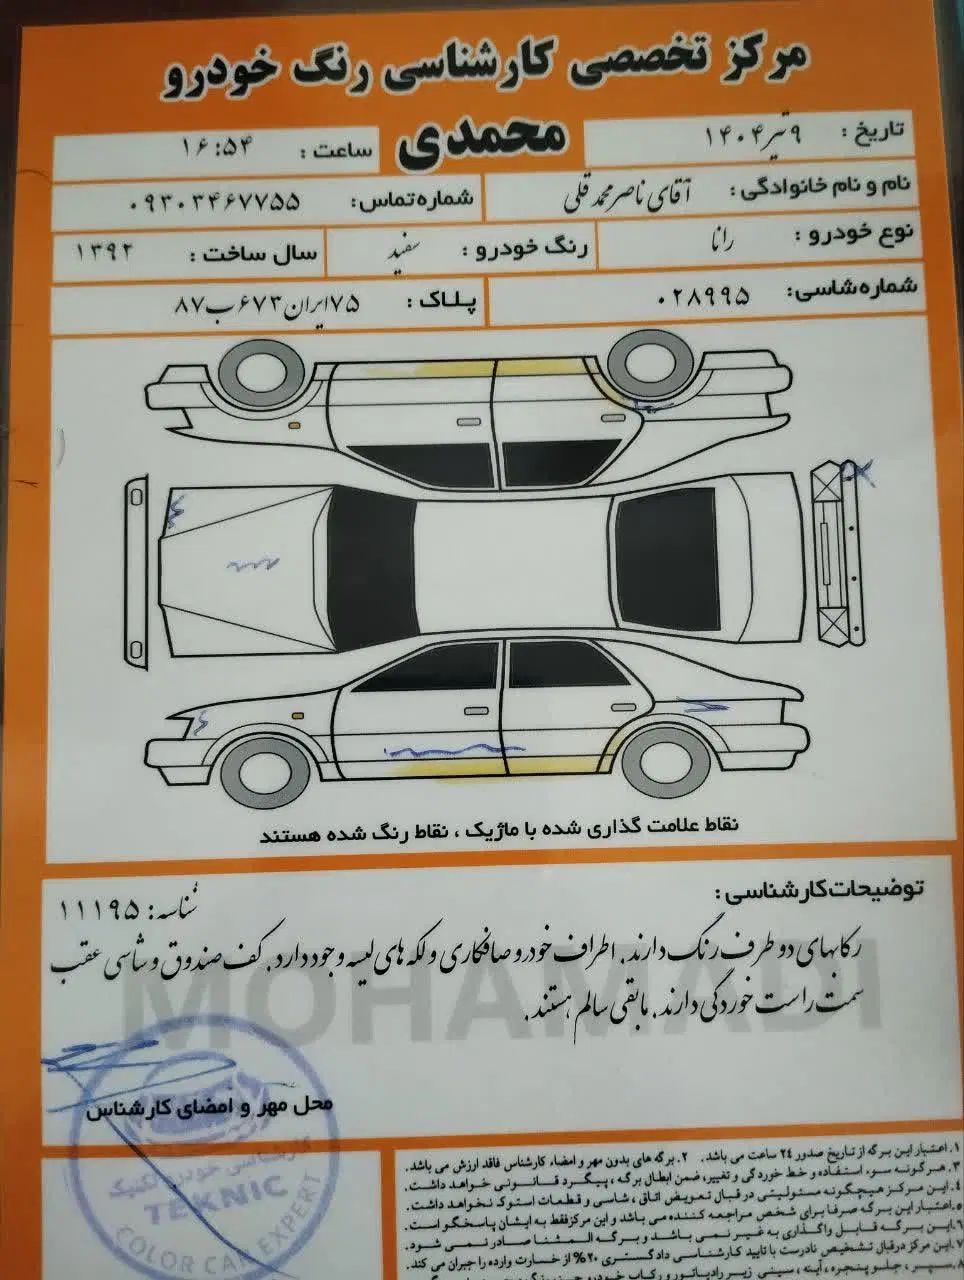 مرکز تخصصی کارشناسی رنگ خودرو
محمدی
تاریخ : ۹ تیر ۱۴۰۴
ساعت : ۱۶:۵۴
نام و نام خانوادگی: آقای ناصر محمد قلی
شماره تماس: ۰۹۳۰۳۴۶۷۷۵۵
نوع خودرو : رانا
رنگ خودرو : سفید
سال ساخت : ۱۳۹۲
شماره شاسی: ۰۲۸۹۹۵
پلاک : ۷۵ ایران ۶۷۳ ب ۸۷
نقاط علامت گذاری شده با ماژیک ، نقاط رنگ شده هستند
توضیحات کارشناسی :
شناسه: ۱۱۱۹۵
رکابهای دو طرف رنگ دارند. اطراف خودرو صافکاری و لکه های لیسه وجود دارد. کف صندوق و شاسی عقب
سمت راست خوردگی دارند. مابقی سالم هستند.
MOHAMADI
محل مهر و امضای کارشناس
کارشناسی خودرو تکنیک
TEKNIC
COLOR CAR EXPERT
۱. اعتبار این برگه از تاریخ صدور ۲۴ ساعت می باشد. ۲. برگه های بدون مهر و امضاء کارشناس فاقد ارزش می باشد.
۳. هرگونه سوء استفاده و خط خوردگی و تغییر، ضمن ابطال برگه ، پیگرد قانونی خواهد داشت.
۴. این مرکز هیچگونه مسئولیتی در قبال تعویض اتاق ، شاسی و قطعات استوک نخواهد داشت.
۵. اعتبار این برگه صرفا برای شخص مراجعه کننده می باشد و این مرکز فقط به ایشان پاسخگو است.
۶. این برگه قابل واگذاری به غیر نمی باشد و برگه المثنا صادر نمی شود.
۷. این مرکز در قبال تشخیص نادرست با تایید کارشناسی دادگستری ۲۰% از خسارت وارده را جبران می کند.
۸. سپر ، جلو پنجره ، آینه ، سینی زیر رادیاتور و رکاب خودرو